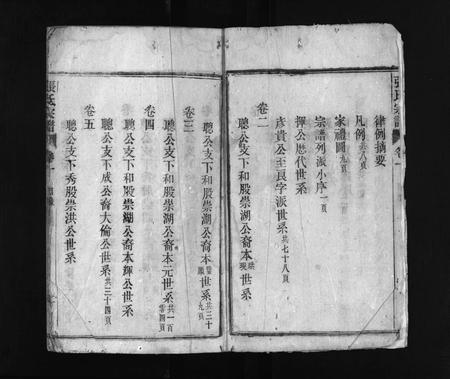 張氏宗譜 卷一
律例摘要
凡例共八頁
家禮圖九頁
宗譜列派小序一頁
擇公歷代世系
彥貴公至良字派世系共七十八頁
卷二
聰公支下和股崇湖公裔本現世系
卷三
聰公支下和股崇湖公裔本顯世系共三十九頁
卷四
聰公支下和股崇湖公裔本元世系共一百零四頁
聰公支下和股崇湖公裔本輝公世系
聰公支下成公裔大倫公世系共三十四頁
卷五
聰公支下秀股崇洪公世系
張氏宗譜 卷一